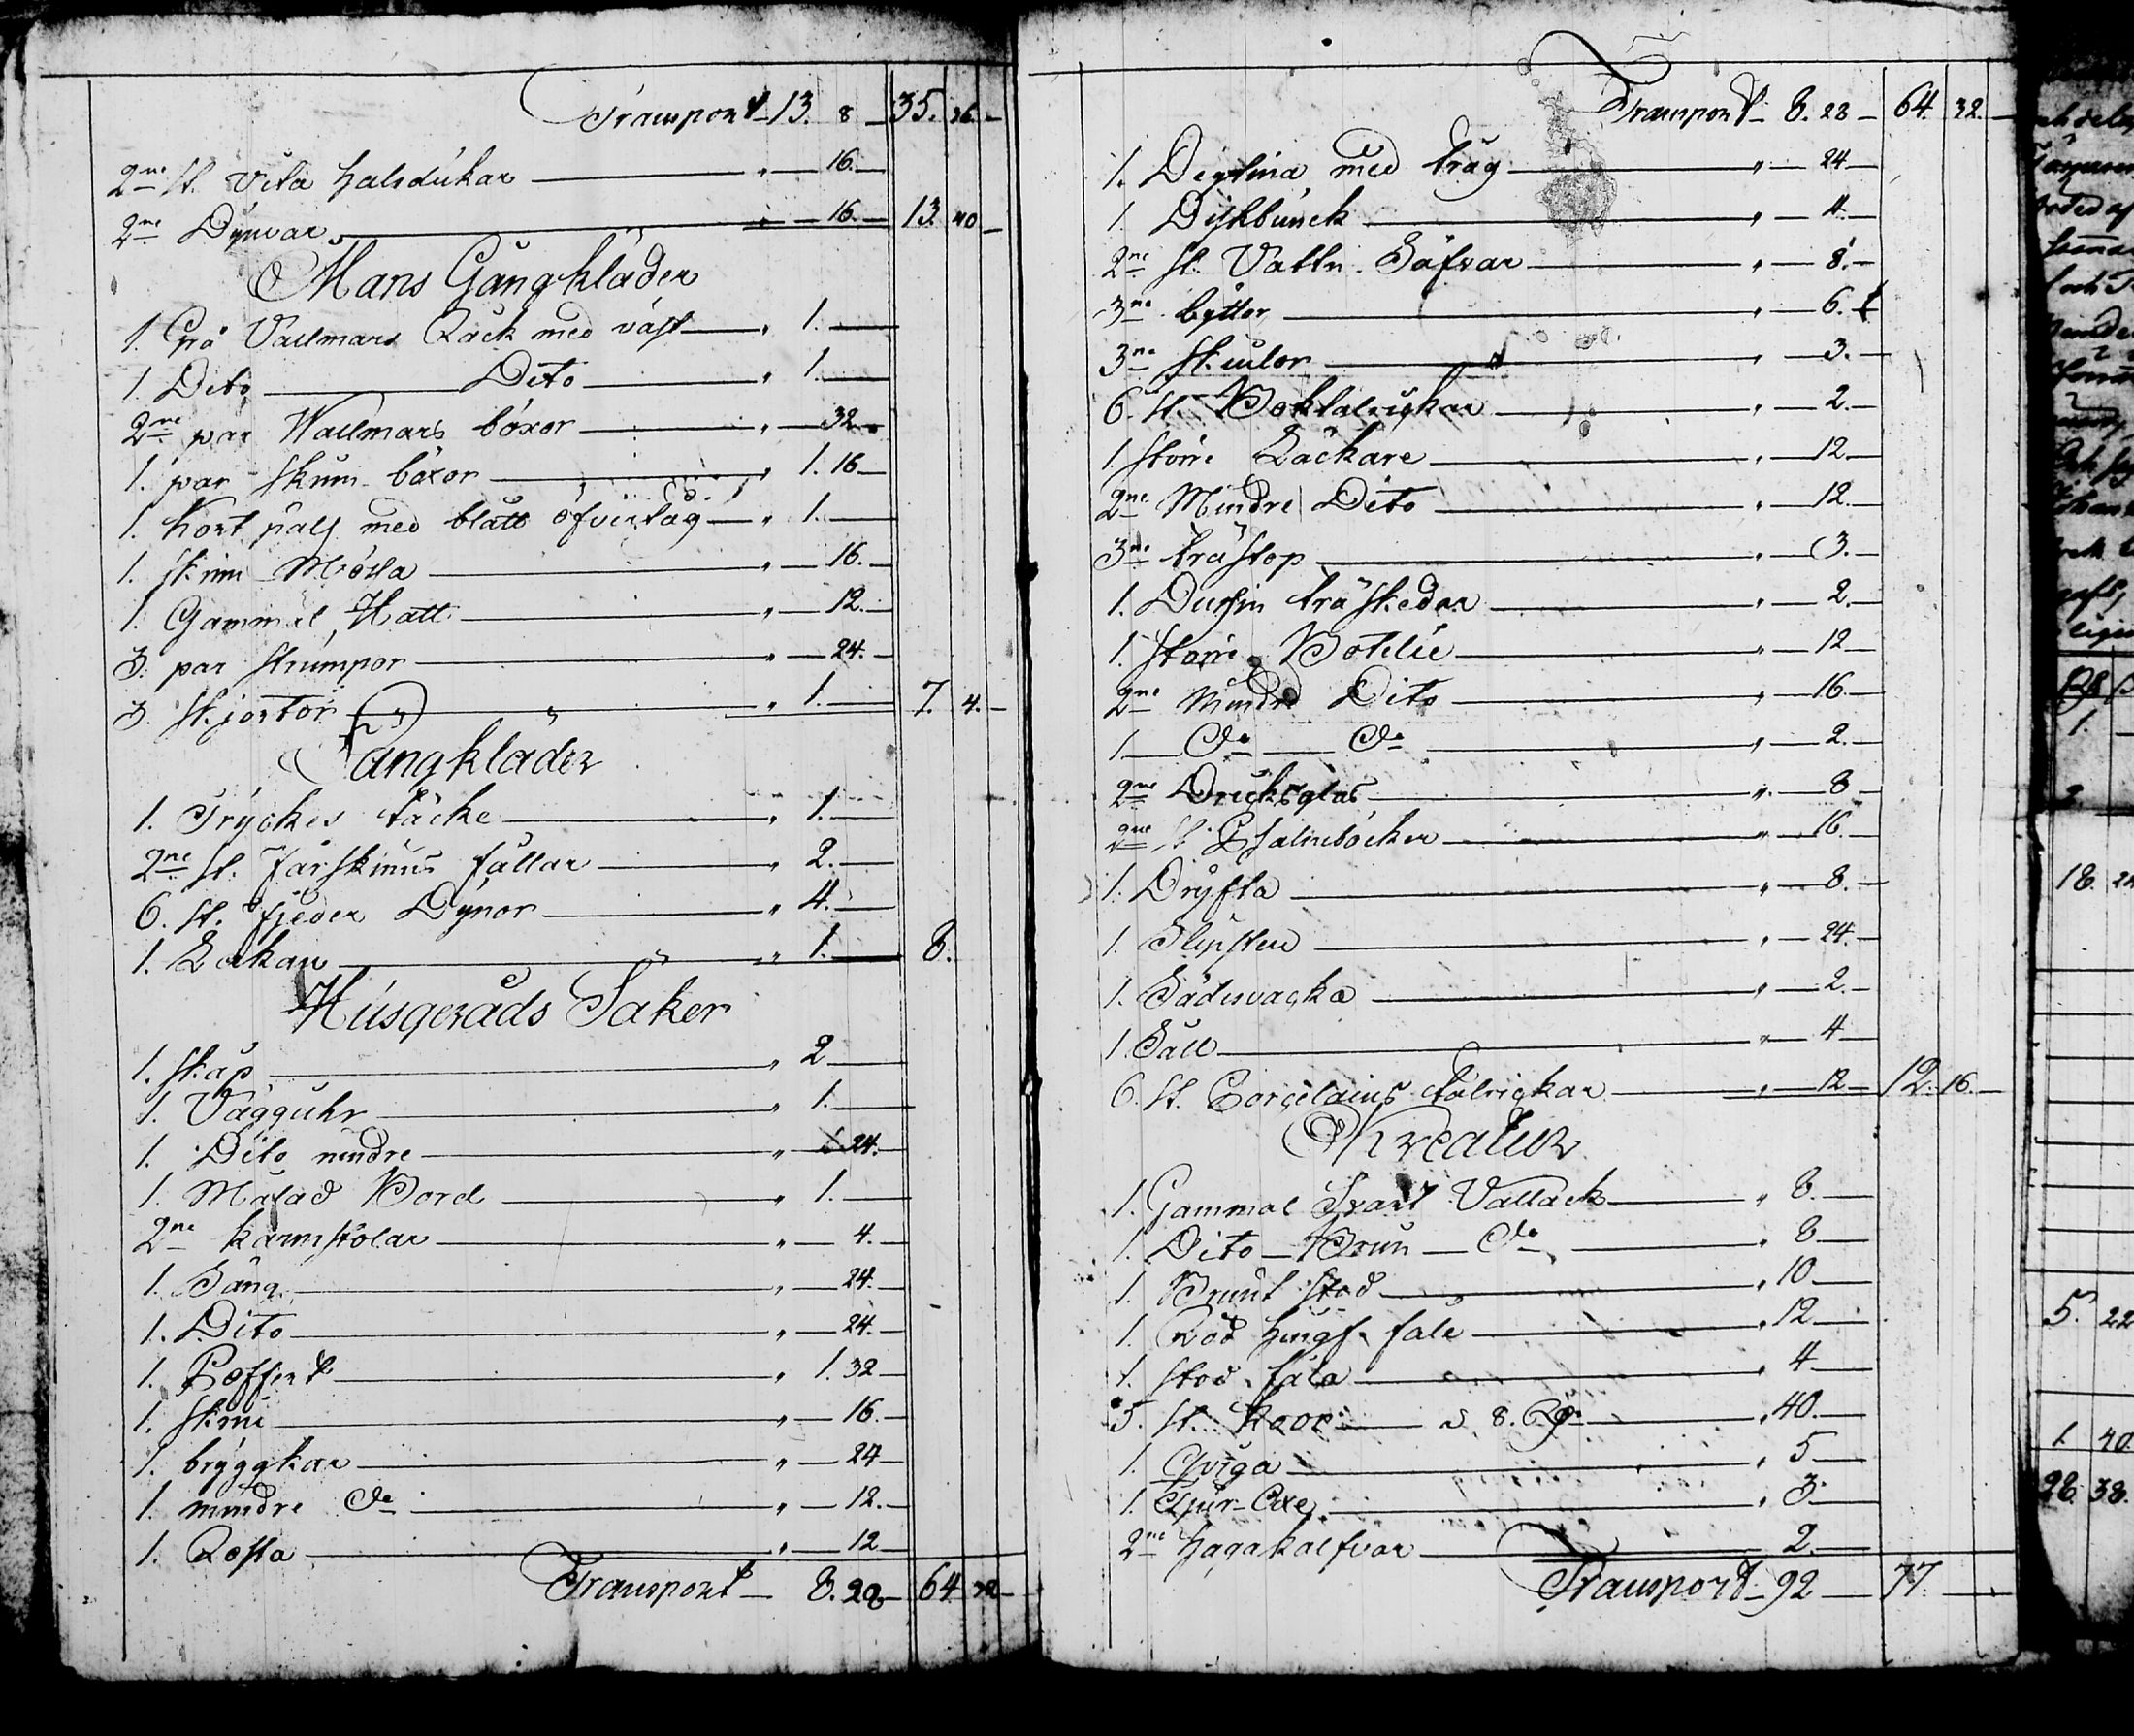 Transport 13. 8 — 35. 36. —
2ne st. Vita halsdukar — " — 16. —
2ne Dynvar — " — 16. — 13. 40 —
Mans Gångkläder
1. Grå Vallmars Råck med väst — " 1. —
1. Dito — Dito — " 1. —
2ne par Wallmars böxor — " — 32 —
1. par skinn böxor — " 1. 16 —
1. Kort päls med blått öfvertåg — " 1. —
1. skinn Mössa — " — 16. —
1. Gammal Hatt — " — 12. —
3. par strumpor — " — 24. —
3. skjortor — " 1. — 7. 4. —
Sängkläder
1. Tryckes täcke — " 1. —
2ne st. Fårskinns fällar — " 2. —
6. st. fjeder Dynor — " 4. —
1. Lakan — " 1. — 8.
Husgeråds Saker
1. skåp — " 2 —
1. Vägguhr — " 1. —
1. Dito mindre — " 24. —
1. Målad Bord — " 1. —
2ne karmstolar — " — 4. —
1. Säng — " — 24. —
1. Dito — " — 24. —
1. Koffert — " 1. 32 —
1. skrin — " — 16. —
1. bryggkar — " — 24 —
1. mindre do — " — 12. —
1. Rosta — " — 12
Transport — 8. 28 — 64 32 —
Transport — 8. 28 — 64. 32. —
1. Degtina med tråg — " — 24 —
1. Diskbunck — " — 4. —
2ne st. Vattn. Såfvar — " — 8. —
3ne byttor — " — 6. —
3ne skulor — " — 3. —
6. st. Boktalrickar — " — 2. —
1. större Läckare — " — 12 —
2ne Mindre Dito — " — 12. —
3ne trästop — " — 3. —
1. Dussin träskedar — " — 2. —
1. större Botelie — " — 12 —
2ne Mindre Dito — " — 16. —
1 — do — do — " — 2. —
2ne Dricksglas — " — 8 —
2ne st. Psalmböcker — " — 16. —
1. Dryfta — " — 8. —
1. Slipsten — " — 24. —
1. Sädesvacka — " — 2. —
1 Såll — " — 4 —
6. st. Porcelains talrickar — " — 12 — 12. 16. —
Kreatur
1. Gammal Svart Vallack — " 8. —
1. Dito — Brun — do — " 8 —
1. Brunt stod — " 10 —
1. Röd hingst fåle — " 12 —
1. stod fåla — " 4 —
5. st. Koor — a 8. Rd — " 40. —
1. Qviga — " 5 —
1. Tjur-Oxe — " 3. —
2ne hagakalfvar — 2. —
Transport — 92 — 77. —
1.
18. 24
5. 22
1 40.
38.